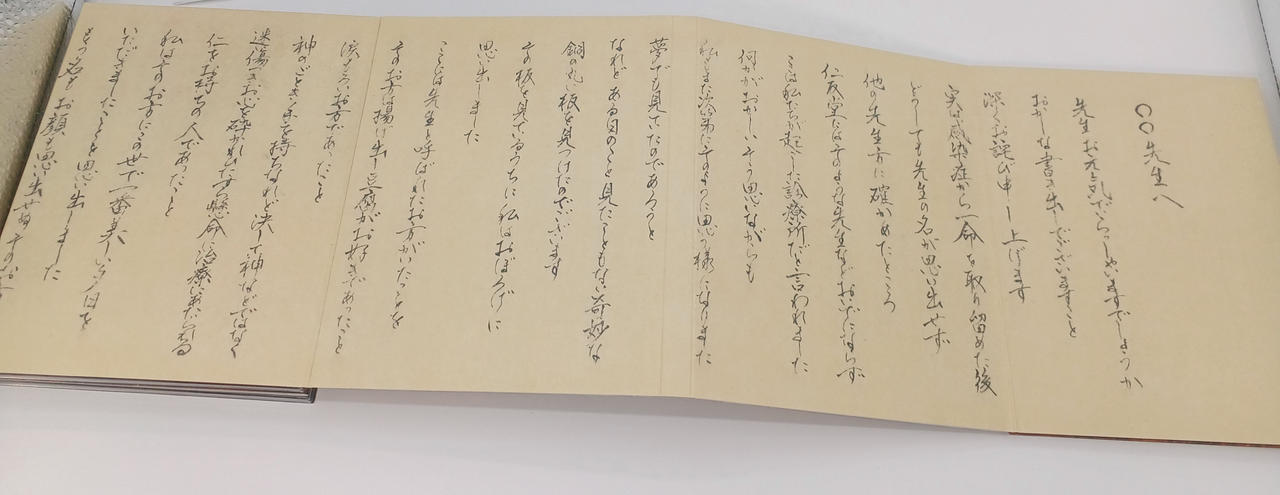 〇〇先生へ
先生お元気でいらっしゃいますでしょうか
おかしな書き出しでございますこと
深くお詫び申し上げます
実は感染症から一命を取り留めた後
どうしても先生の名が思い出せず
他の先生方に確かめたところ
仁友堂にはそのような先生などおいでにならず
ここは私たちが起した診療所だと言われました
何かがおかしいそう思いながらも
私もまた次第にそのように思う様になりました
夢でも見ていたのであろうと
なれどある日のこと見たこともない奇妙な
銅の丸い板を見つけたのでございます
その板を見ているうちに私はおぼろげに
思い出しました
ここには先生と呼ばれたお方がいたことを
そのお方は揚げ出し豆腐がお好きであったこと
涙もろいお方であったこと
神のごとき手を持ちなれど決して神などでなく
迷い傷つきお心を砕かれひたすら懸命に治療にあたられる
仁をお持ちの人であったこと
私はそのお方にこの世で一番美しい夕日を
いただきましたことを思い出しました
もう名もお顔も思い出せぬそのお